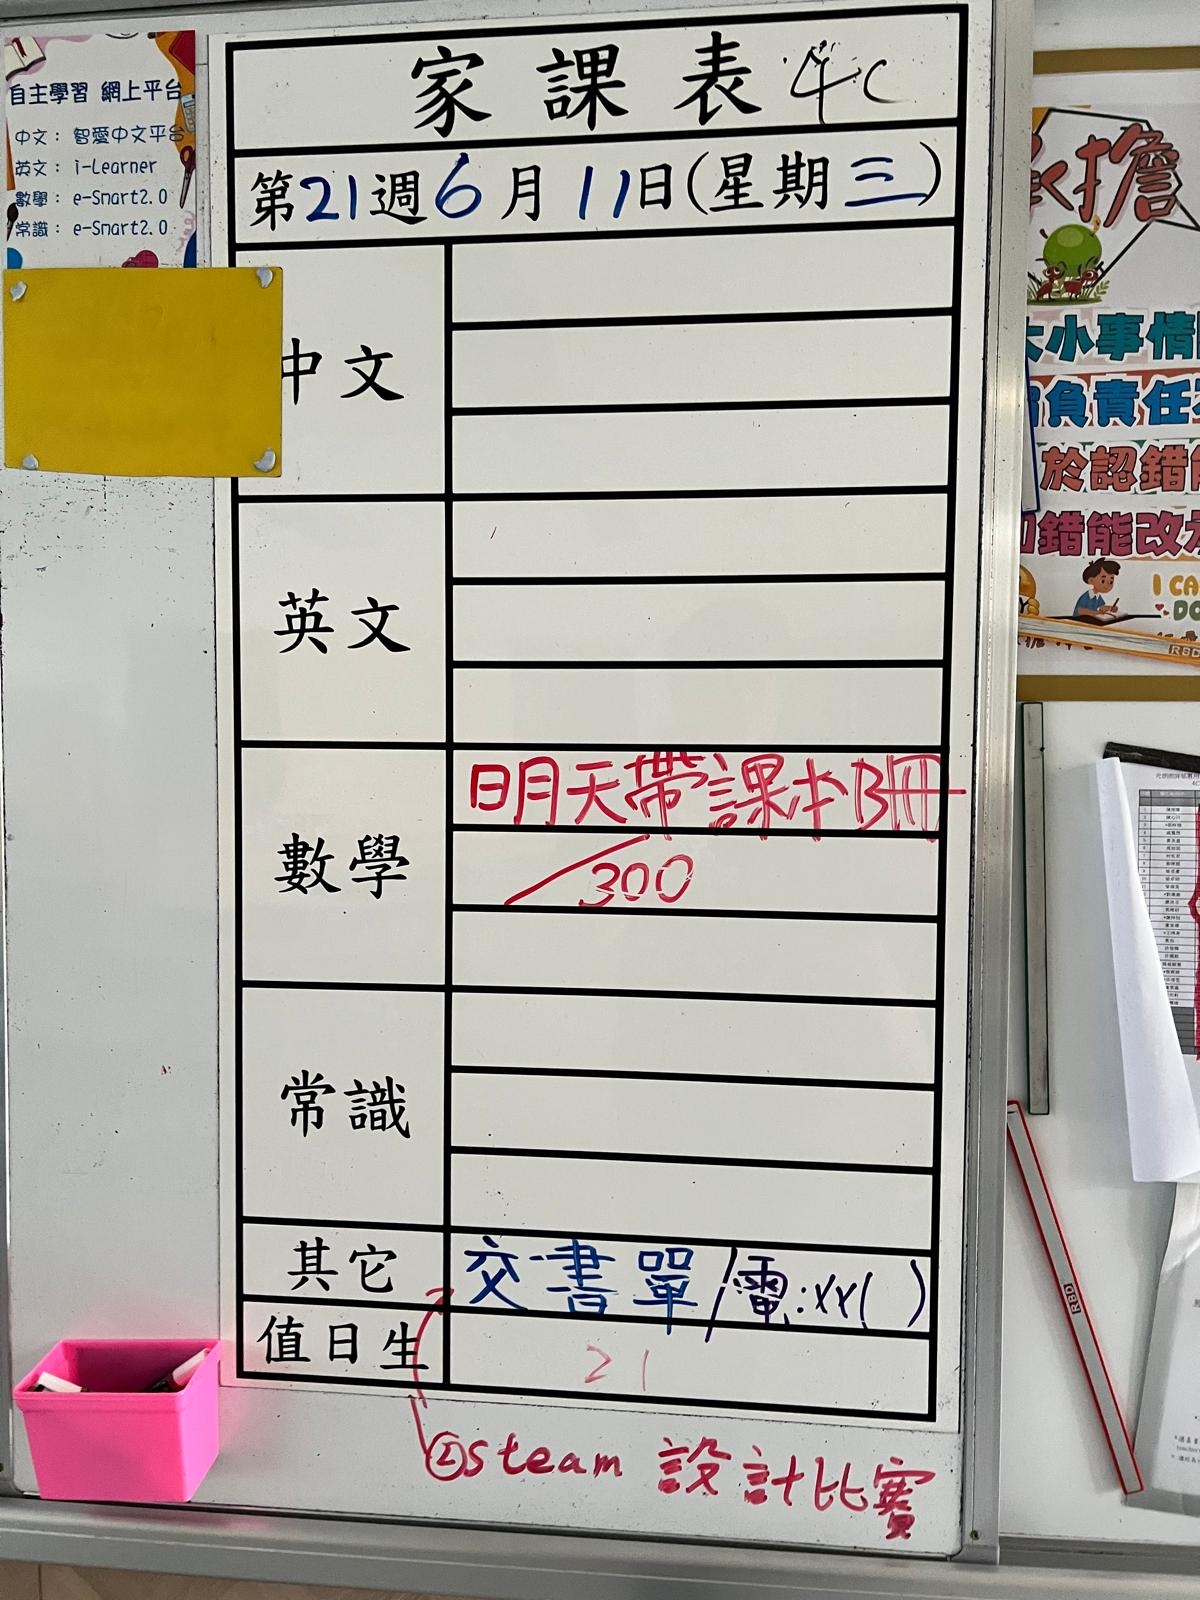 家課表 4C
第21週6月11日(星期三)
中文
英文
數學
明天帶課本B冊
/300
常識
其它
交書單/電:xx( )
值日生
21
②steam 設計比賽
自主學習 網上平台
中文： 智愛中文平台
英文： i-Learner
數學： e-Smart2.0
常識： e-Smart2.0
承擔
大小事情
負責任
於認錯能
知錯能改
I CA
DO
RBD
RBD